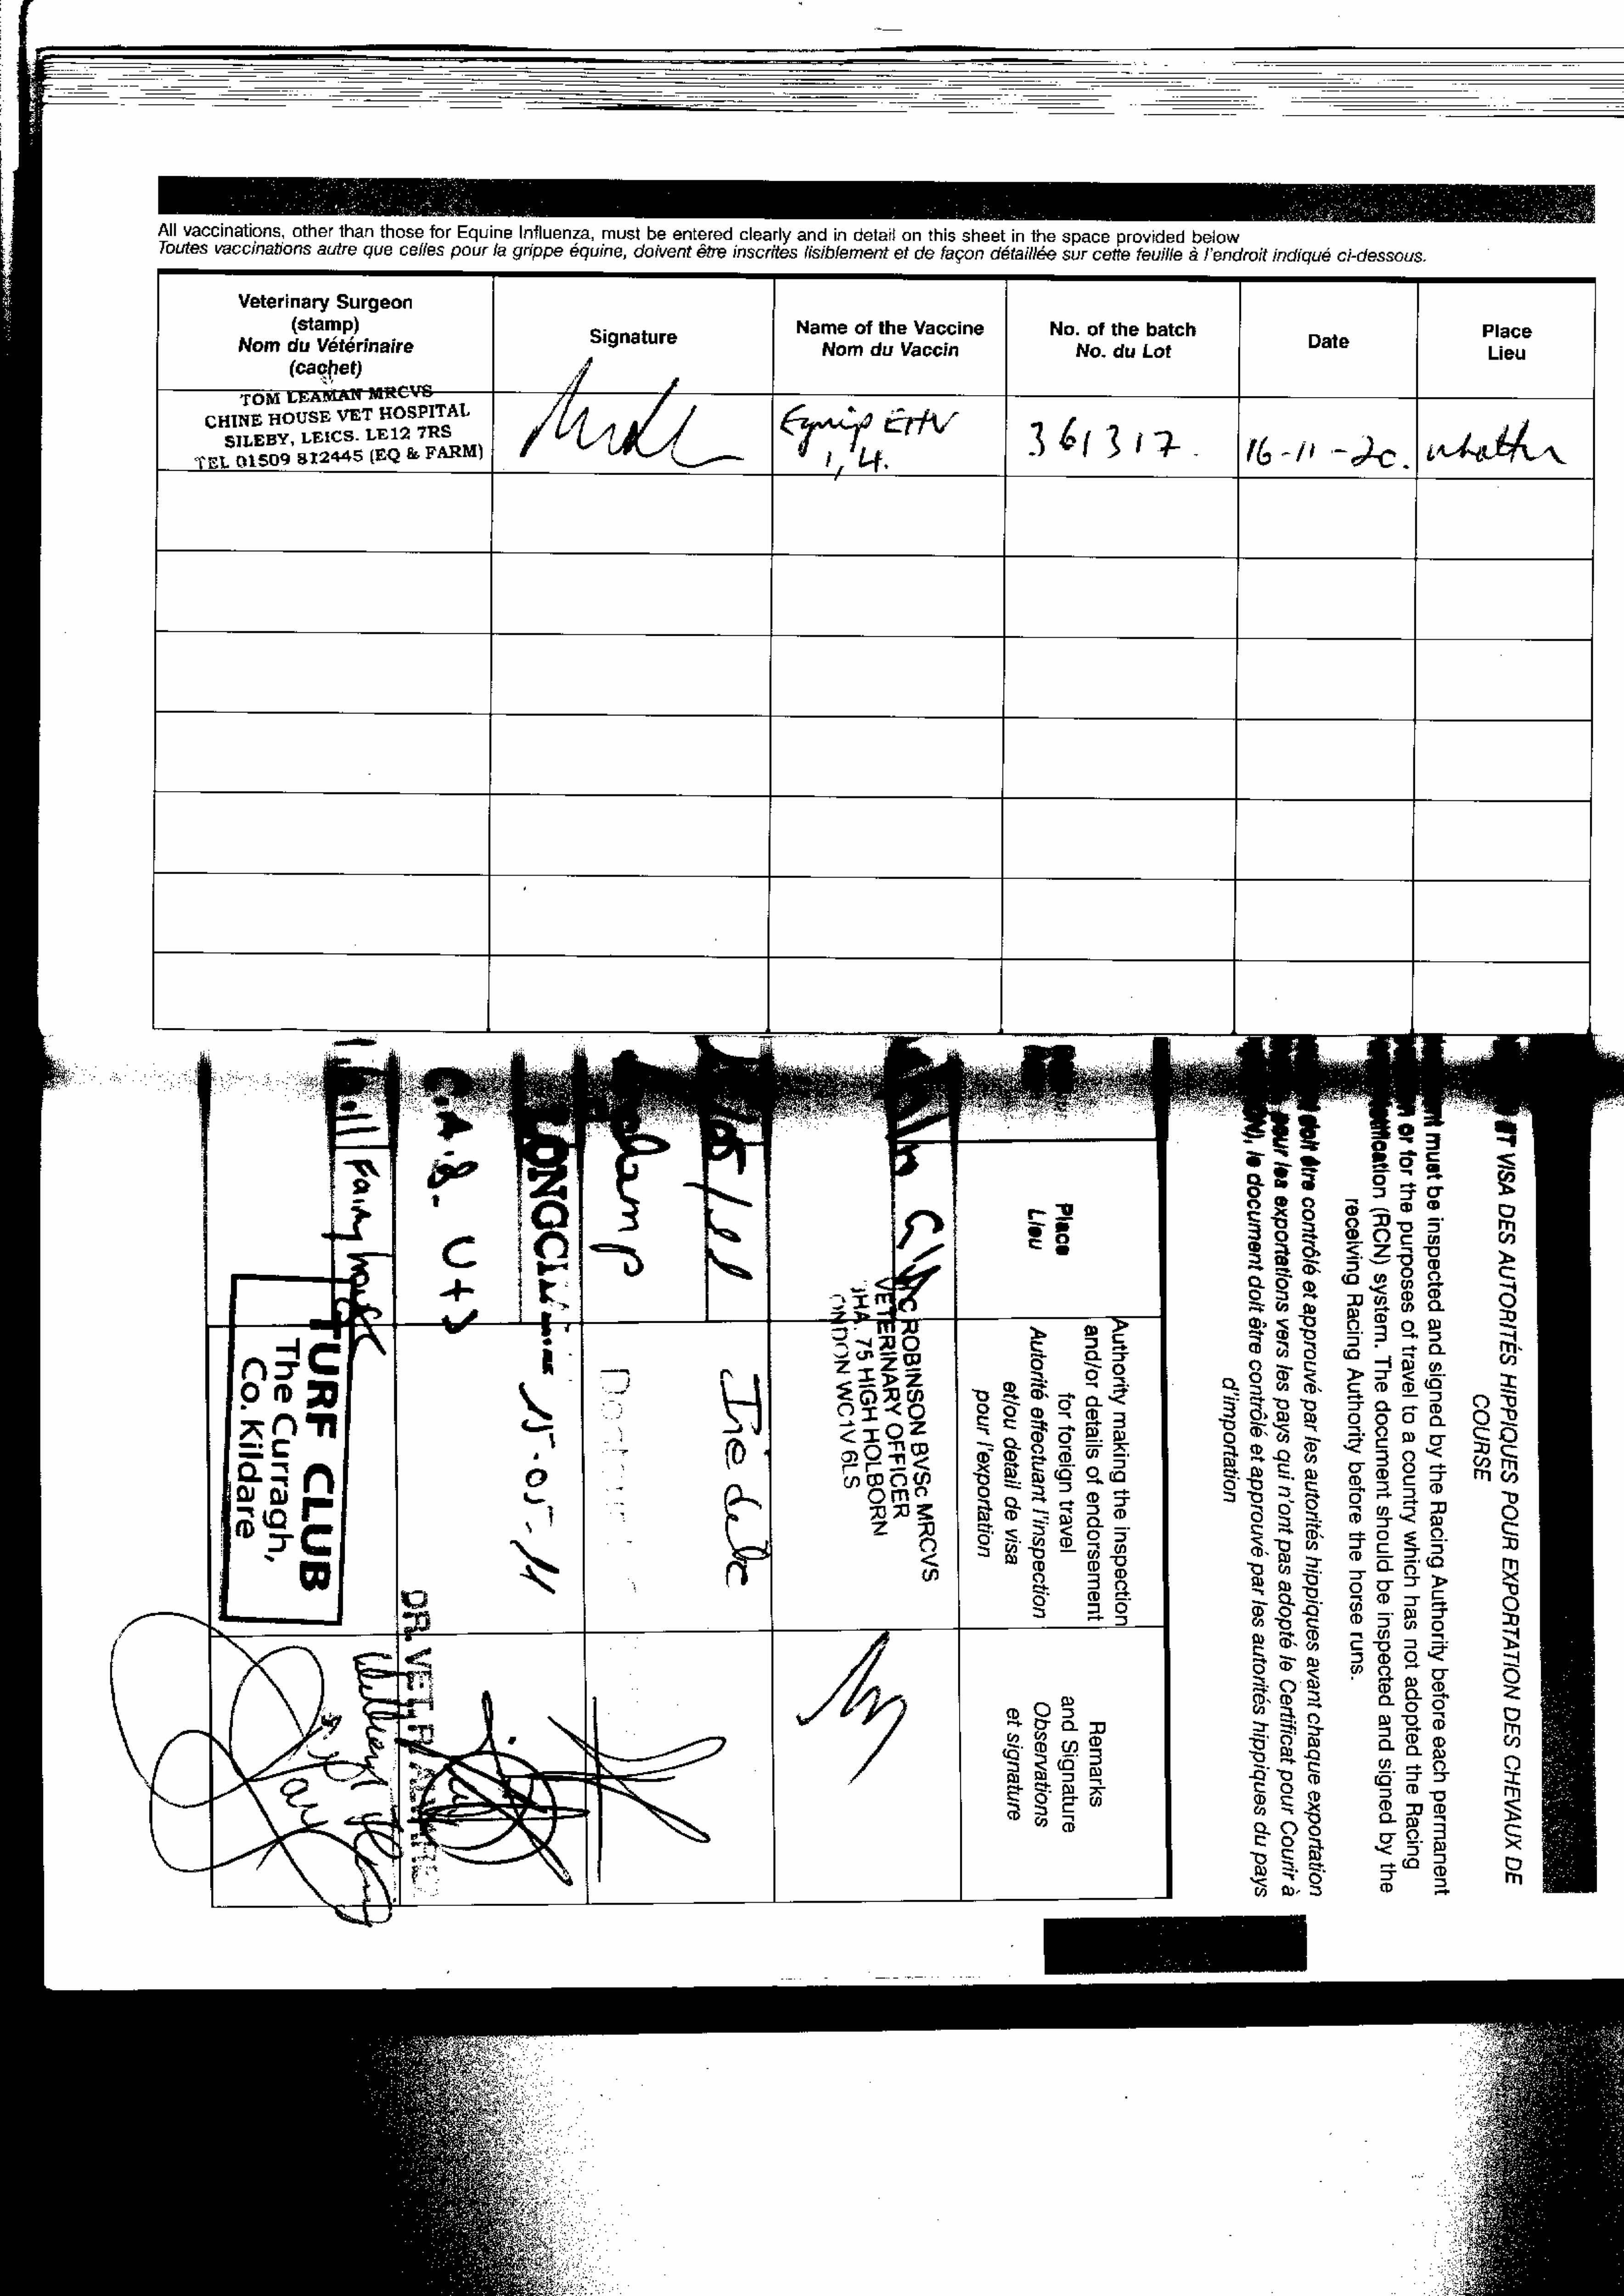 All vaccinations, other than those for Equine Influenza, must be entered clearly and in detail on this sheet in the space provided below
Toutes vaccinations autre que celles pour la grippe équine, doivent être inscrites lisiblement et de façon détaillée sur cette feuille à l'endroit indiqué ci-dessous.
Veterinary Surgeon
(stamp)
Nom du Vétérinaire
(cachet)
Signature
Name of the Vaccine
Nom du Vaccin
No. of the batch
No. du Lot
Date
Place
Lieu
TOM LEAMAN MRCVS
CHINE HOUSE VET HOSPITAL
SILEBY, LEICS. LE12 7RS
TEL 01509 812445 (EQ & FARM)
Equip EHV
1,4.
361317.
16-11-20.
ET VISA DES AUTORITÉS HIPPIQUES POUR EXPORTATION DES CHEVAUX DE
COURSE
must be inspected and signed by the Racing Authority before each permanent
or for the purposes of travel to a country which has not adopted the Racing
(RCN) system. The document should be inspected and signed by the
receiving Racing Authority before the horse runs.
doit être contrôlé et approuvé par les autorités hippiques avant chaque exportation
pour les exportations vers les pays qui n'ont pas adopté le Certificat pour Courir à
le document doit être contrôlé et approuvé par les autorités hippiques du pays
d'importation
Place
Lieu
Authority making the inspection
and/or details of endorsement
for foreign travel
Autorité effectuant l'inspection
et/ou detail de visa
pour l'exportation
Remarks
and Signature
Observations
et signature
ROBINSON BVSc MRCVS
VETERINARY OFFICER
75 HIGH HOLBORN
WC1V 6LS
15-05-11
DR. VET.
Fairyhouse
TURF CLUB
The Curragh,
Co. Kildare